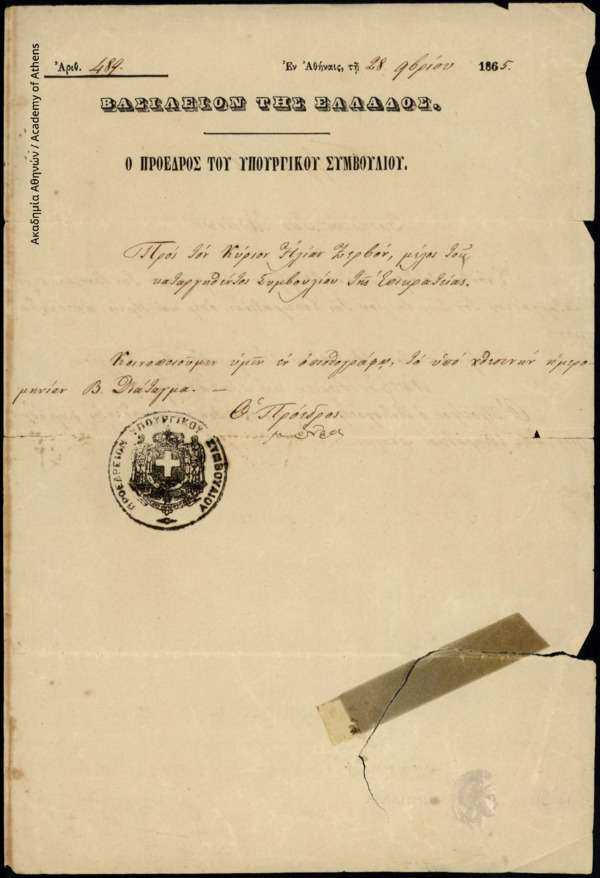 Ἀριθ. 489. Ἐν Ἀθήναις, τῇ 28 9βρίου 1865.
ΒΑΣΙΛΕΙΟΝ ΤΗΣ ΕΛΛΑΔΟΣ.
Ο ΠΡΟΕΔΡΟΣ ΤΟΥ ΥΠΟΥΡΓΙΚΟΥ ΣΥΜΒΟΥΛΙΟΥ.
Πρὸς τὸν Κύριον Ἠλίαν Ζερβόν, μέλος τοῦ
καταργηθέντος Συμβουλίου τῆς Ἐπικρατείας.
Κοινοποιοῦμεν ὑμῖν ἐν ὀπισθογράφῳ, τὸ ὑπὸ χθεσινὴν ἡμερο
μηνίαν Β. Διάταγμα. —
Ὁ Πρόεδρος
ΠΡΟΕΔΡΕΙΟΝ ΥΠΟΥΡΓΙΚΟΥ ΣΥΜΒΟΥΛΙΟΥ
Ακαδημία Αθηνών / Academy of Athens